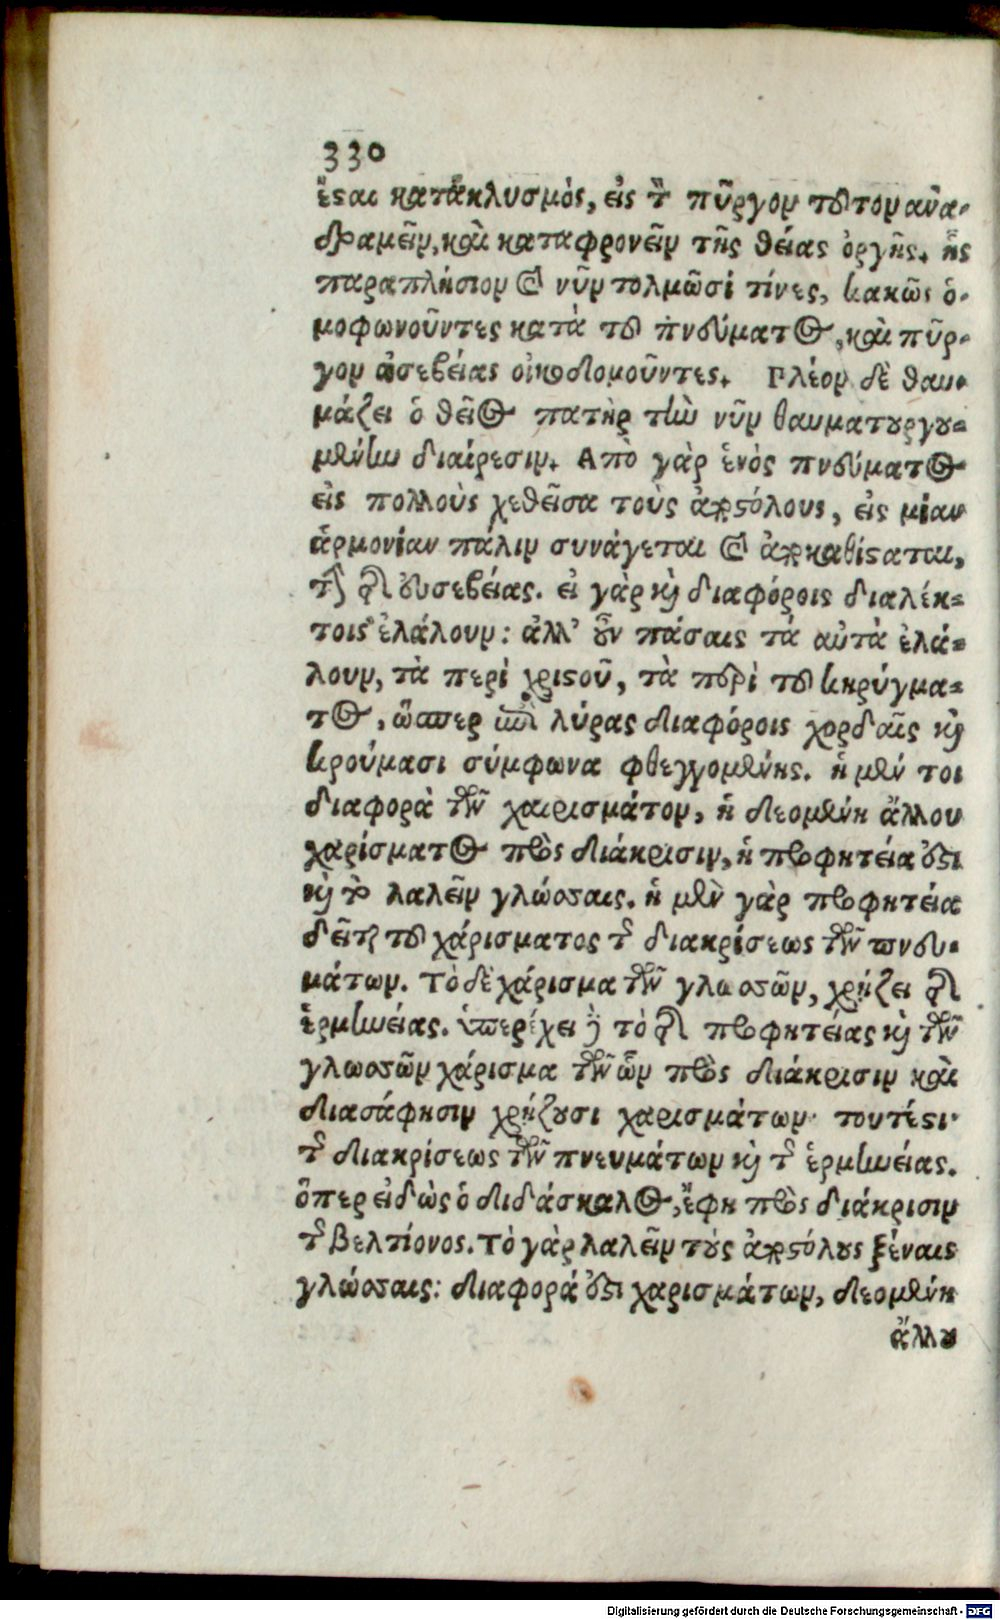 330
ἔσαι κατάκλυσμὸς, εἰς τ πῦργον τοῦτον ἀνα-
δραμεῖν, καὶ καταφρονεῖν τῆς θείας ὀργῆς. ἧς
παραπλήσιον καὶ νῦν τολμῶσί τίνες, κακῶς ὁ-
μοφωνοῦντες κατὰ τοῦ πνεύματος, καὶ πῦρ-
γον ἀσεβείας οἰκοδομοῦντες. Πλέον δὲ θαυ-
μάζει ὁ θεῖος πατὴρ τὴν νῦν θαυματουργου-
μένην διαίρεσιν. Ἀπὸ γὰρ ἑνὸς πνεύματος
εἰς πολλοὺς χεθεῖσα τοὺς ἀποστόλους, εἰς μίαν
ἁρμονίαν πάλιν συνάγεται καὶ ἀποκαθίσαται,
τῆς εὐσεβείας. εἰ γὰρ καὶ διαφόροις διαλέκ-
τοις ἐλάλουν: ἀλλ' οὖν πάσαις τὰ αὐτὰ ἐλά-
λουν, τὰ περὶ χριστοῦ, τὰ περὶ τοῦ κηρύγμα-
τος, ὥσπερ λύρας διαφόροις χορδαῖς καὶ
κρούμασι σύμφωνα φθεγγομένης. ἡ μέν τοι
διαφορὰ τῶν χαρισμάτον, ἡ δεομένη ἄλλου
χαρίσματος πρὸς διάκρισιν, ἡ προφητεία ἐστι
καὶ τὸ λαλεῖν γλώσσαις. ἡ μὲν γὰρ προφητεία
δεῖται τοῦ χάρισματος τῆς διακρίσεως τῶν πνευ-
μάτων. Τὸ δὲ χάρισμα τῶν γλωσσῶν, χρῄζει τῆς
ἑρμηνείας. ὑπερέχει γὰρ τὸ τῆς προφητείας καὶ τῶν
γλωσσῶν χάρισμα τῶν ὧν πρὸς διάκρισιν καὶ
διασάφησιν χρῄζουσι χαρισμάτων· τουτέστι·
τῆς διακρίσεως τῶν πνευμάτων καὶ τῆς ἑρμηνείας.
ὅπερ εἰδὼς ὁ διδάσκαλος, ἔφη πρὸς διάκρισιν
τῆς βελτίονος. Τὸ γὰρ λαλεῖν τοὺς ἀποστόλους ξέναις
γλώσσαις: διαφορά ἐστι χαρισμάτων, δεομένη
ἄλλου
Digitalisierung gefördert durch die Deutsche Forschungsgemeinschaft - DFG